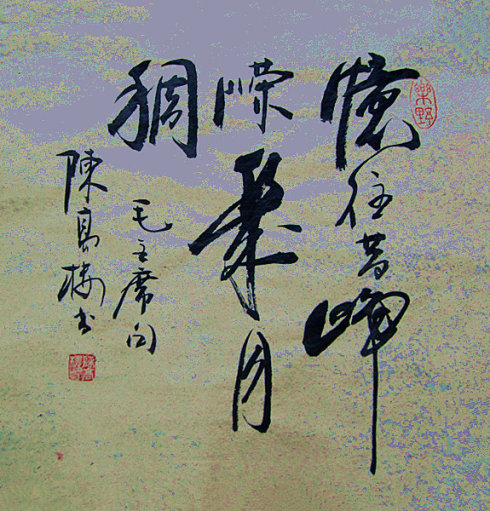 樂野
憶往昔崢
嶸歲月
稠
毛主席句
陳 书